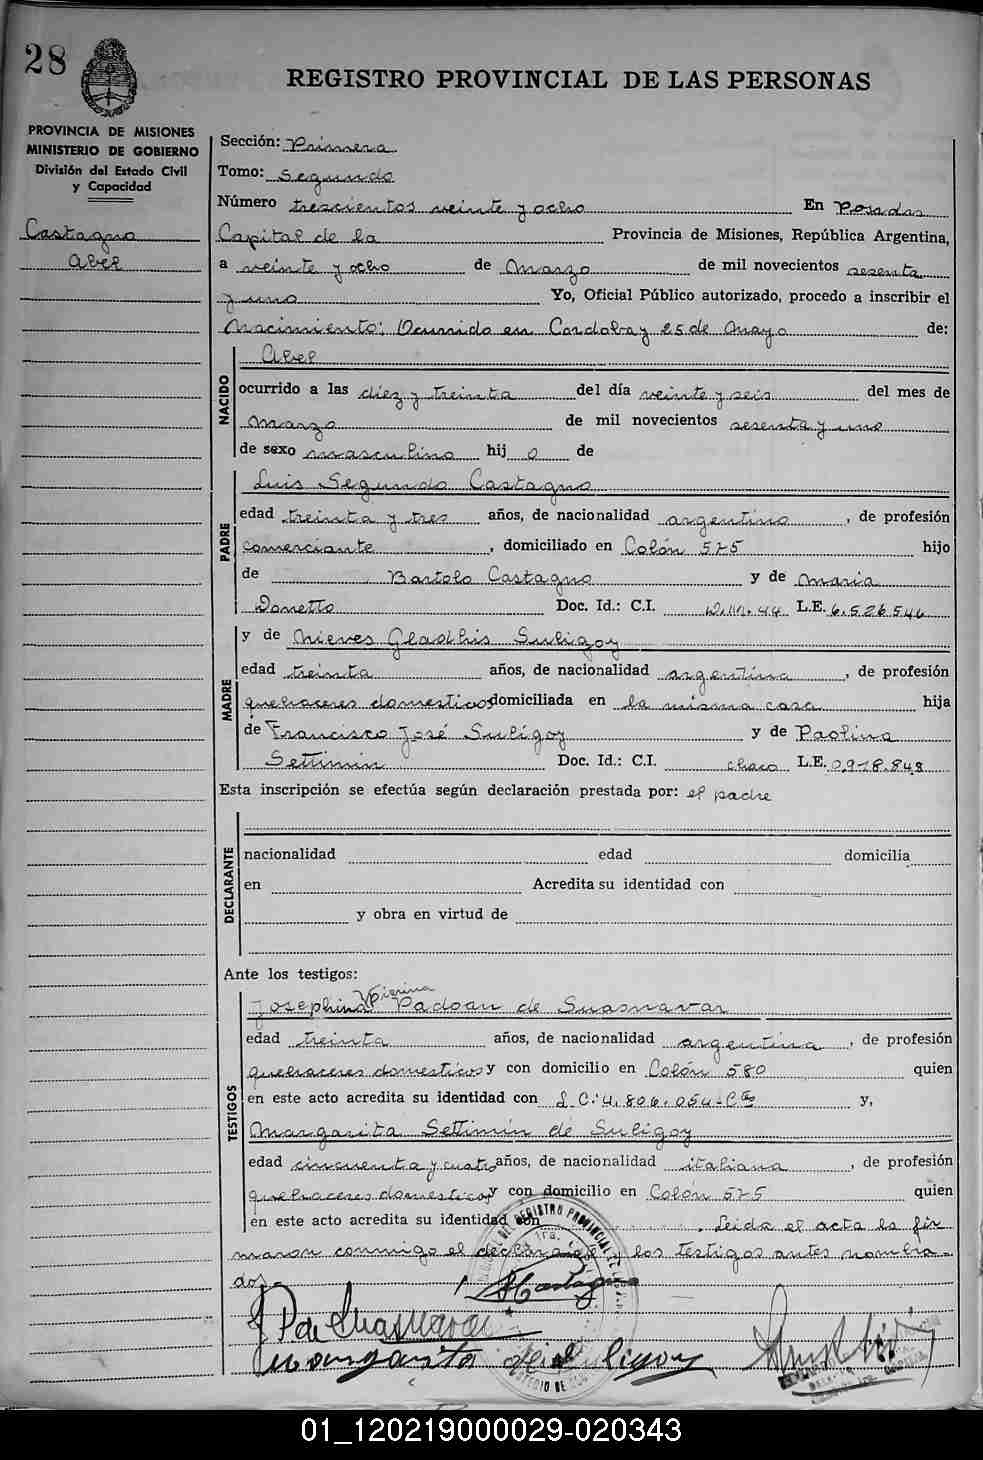 28
REGISTRO PROVINCIAL DE LAS PERSONAS
PROVINCIA DE MISIONES
MINISTERIO DE GOBIERNO
División del Estado Civil
y Capacidad
Castagno
Abel
Sección: Primera
Tomo: Segundo
Número trescientos veinte y ocho En Posadas
Capital de la Provincia de Misiones, República Argentina,
a veinte y ocho de Marzo de mil novecientos sesenta
y uno Yo, Oficial Público autorizado, procedo a inscribir el
Nacimiento: Ocurrido en Cordoba y 25 de Mayo de:
NACIDO
Abel
ocurrido a las diez y treinta del día veinte y seis del mes de
Marzo de mil novecientos sesenta y uno
de sexo masculino hij o de
PADRE
Luis Segundo Castagno
edad treinta y tres años, de nacionalidad argentino, de profesión
comerciante, domiciliado en Colón 575 hijo
de Bartolo Castagno y de Maria
Donetto Doc. Id.: C.I. D.M. 44 L.E. 6.526.546
MADRE
y de Nieves Gladhis Suligoy
edad treinta años, de nacionalidad argentina, de profesión
quehaceres domesticos domiciliada en la misma casa hija
de Francisco José Suligoy y de Paolina
Settimin Doc. Id.: C.I. chaco L.E. 0.978.848
Esta inscripción se efectúa según declaración prestada por: el padre
DECLARANTE
nacionalidad edad domicilia
en Acredita su identidad con
y obra en virtud de
Ante los testigos:
TESTIGOS
Vierina
Josephina Padoan de Suasnavar
edad treinta años, de nacionalidad argentina, de profesión
quehaceres domesticos y con domicilio en Colón 580 quien
en este acto acredita su identidad con L.C: 4.806.054 y,
Margarita Settimin de Suligoy
edad cincuenta y cuatro años, de nacionalidad italiana, de profesión
quehaceres domesticos y con domicilio en Colón 575 quien
en este acto acredita su identidad con . Leida el acta la fir
maron conmigo el declarante y los testigos antes nombra-
dos.-
LCastagno
P de Suasnavar
Margarita de Suligoy
01_120219000029-020343